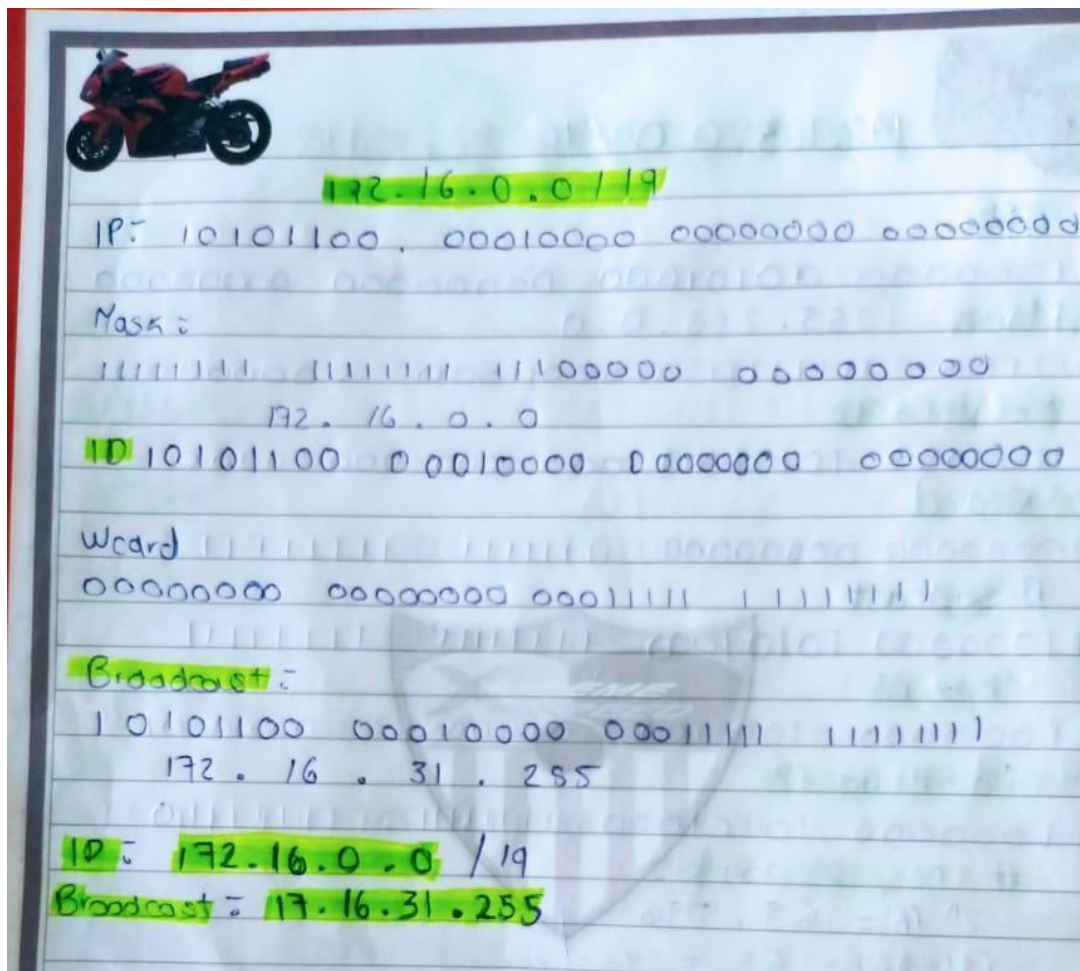 172.16.0.0/19
IP: 10101100. 00010000 00000000 00000000
Mask:
11111111 11111111 11100000 00000000
172. 16. 0. 0
ID 10101100 00010000 00000000 00000000
Wcard
00000000 00000000 00011111 11111111
Broadcast:
10101100 00010000 00011111 11111111
172. 16. 31. 255
ID: 172.16.0.0 /19
Broadcast: 17.16.31.255